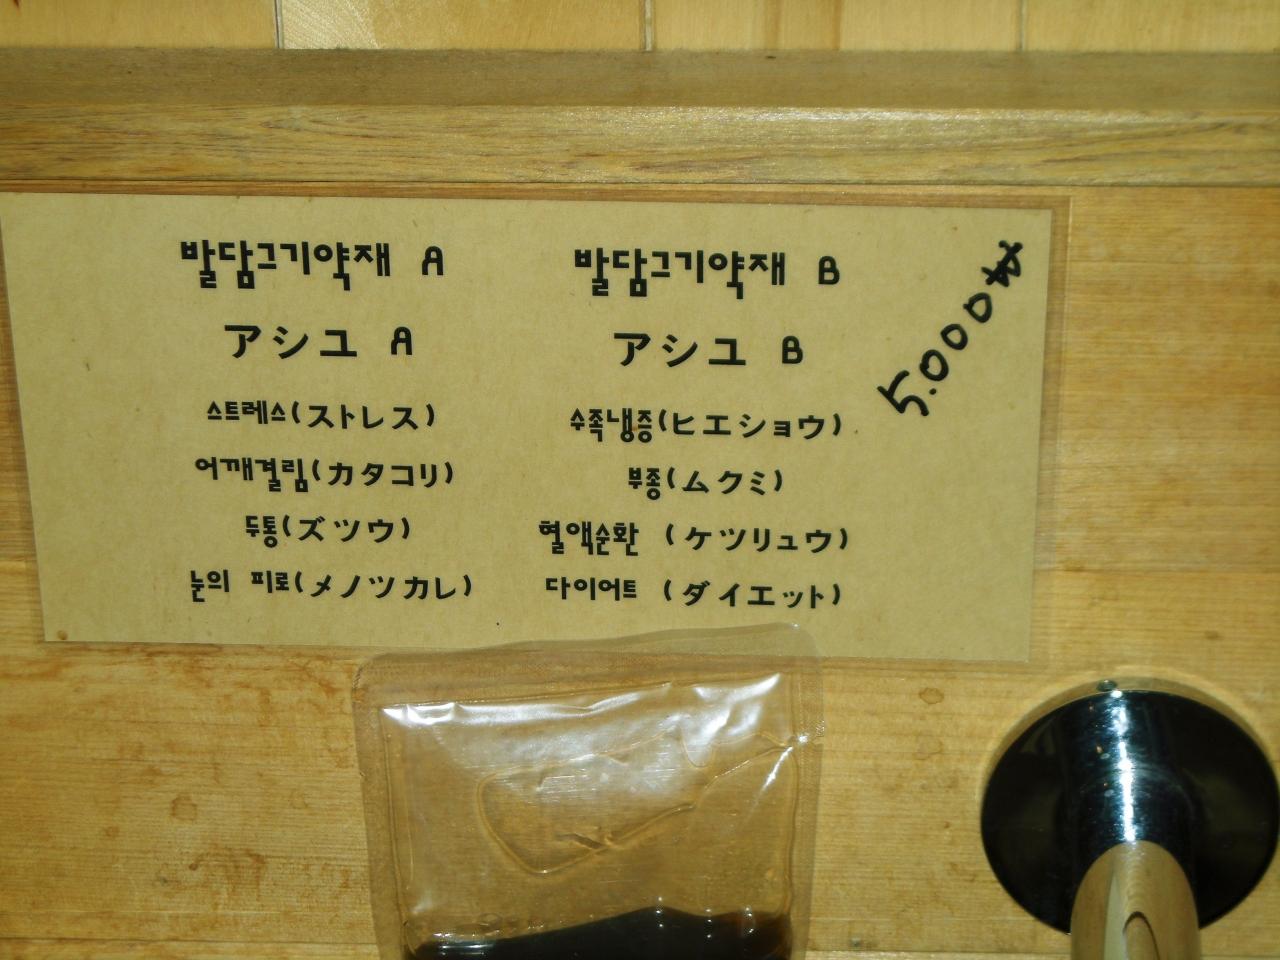 발담그기약재 A
アシユ A
스트레스(ストレス)
어깨결림(カタコリ)
두통(ズツウ)
눈의 피로(メノツカレ)
발담그기약재 B
アシユ B
수족냉증(ヒエショウ)
부종(ムクミ)
혈액순환 (ケツリュウ)
다이어트 (ダイエット)
5.000₩